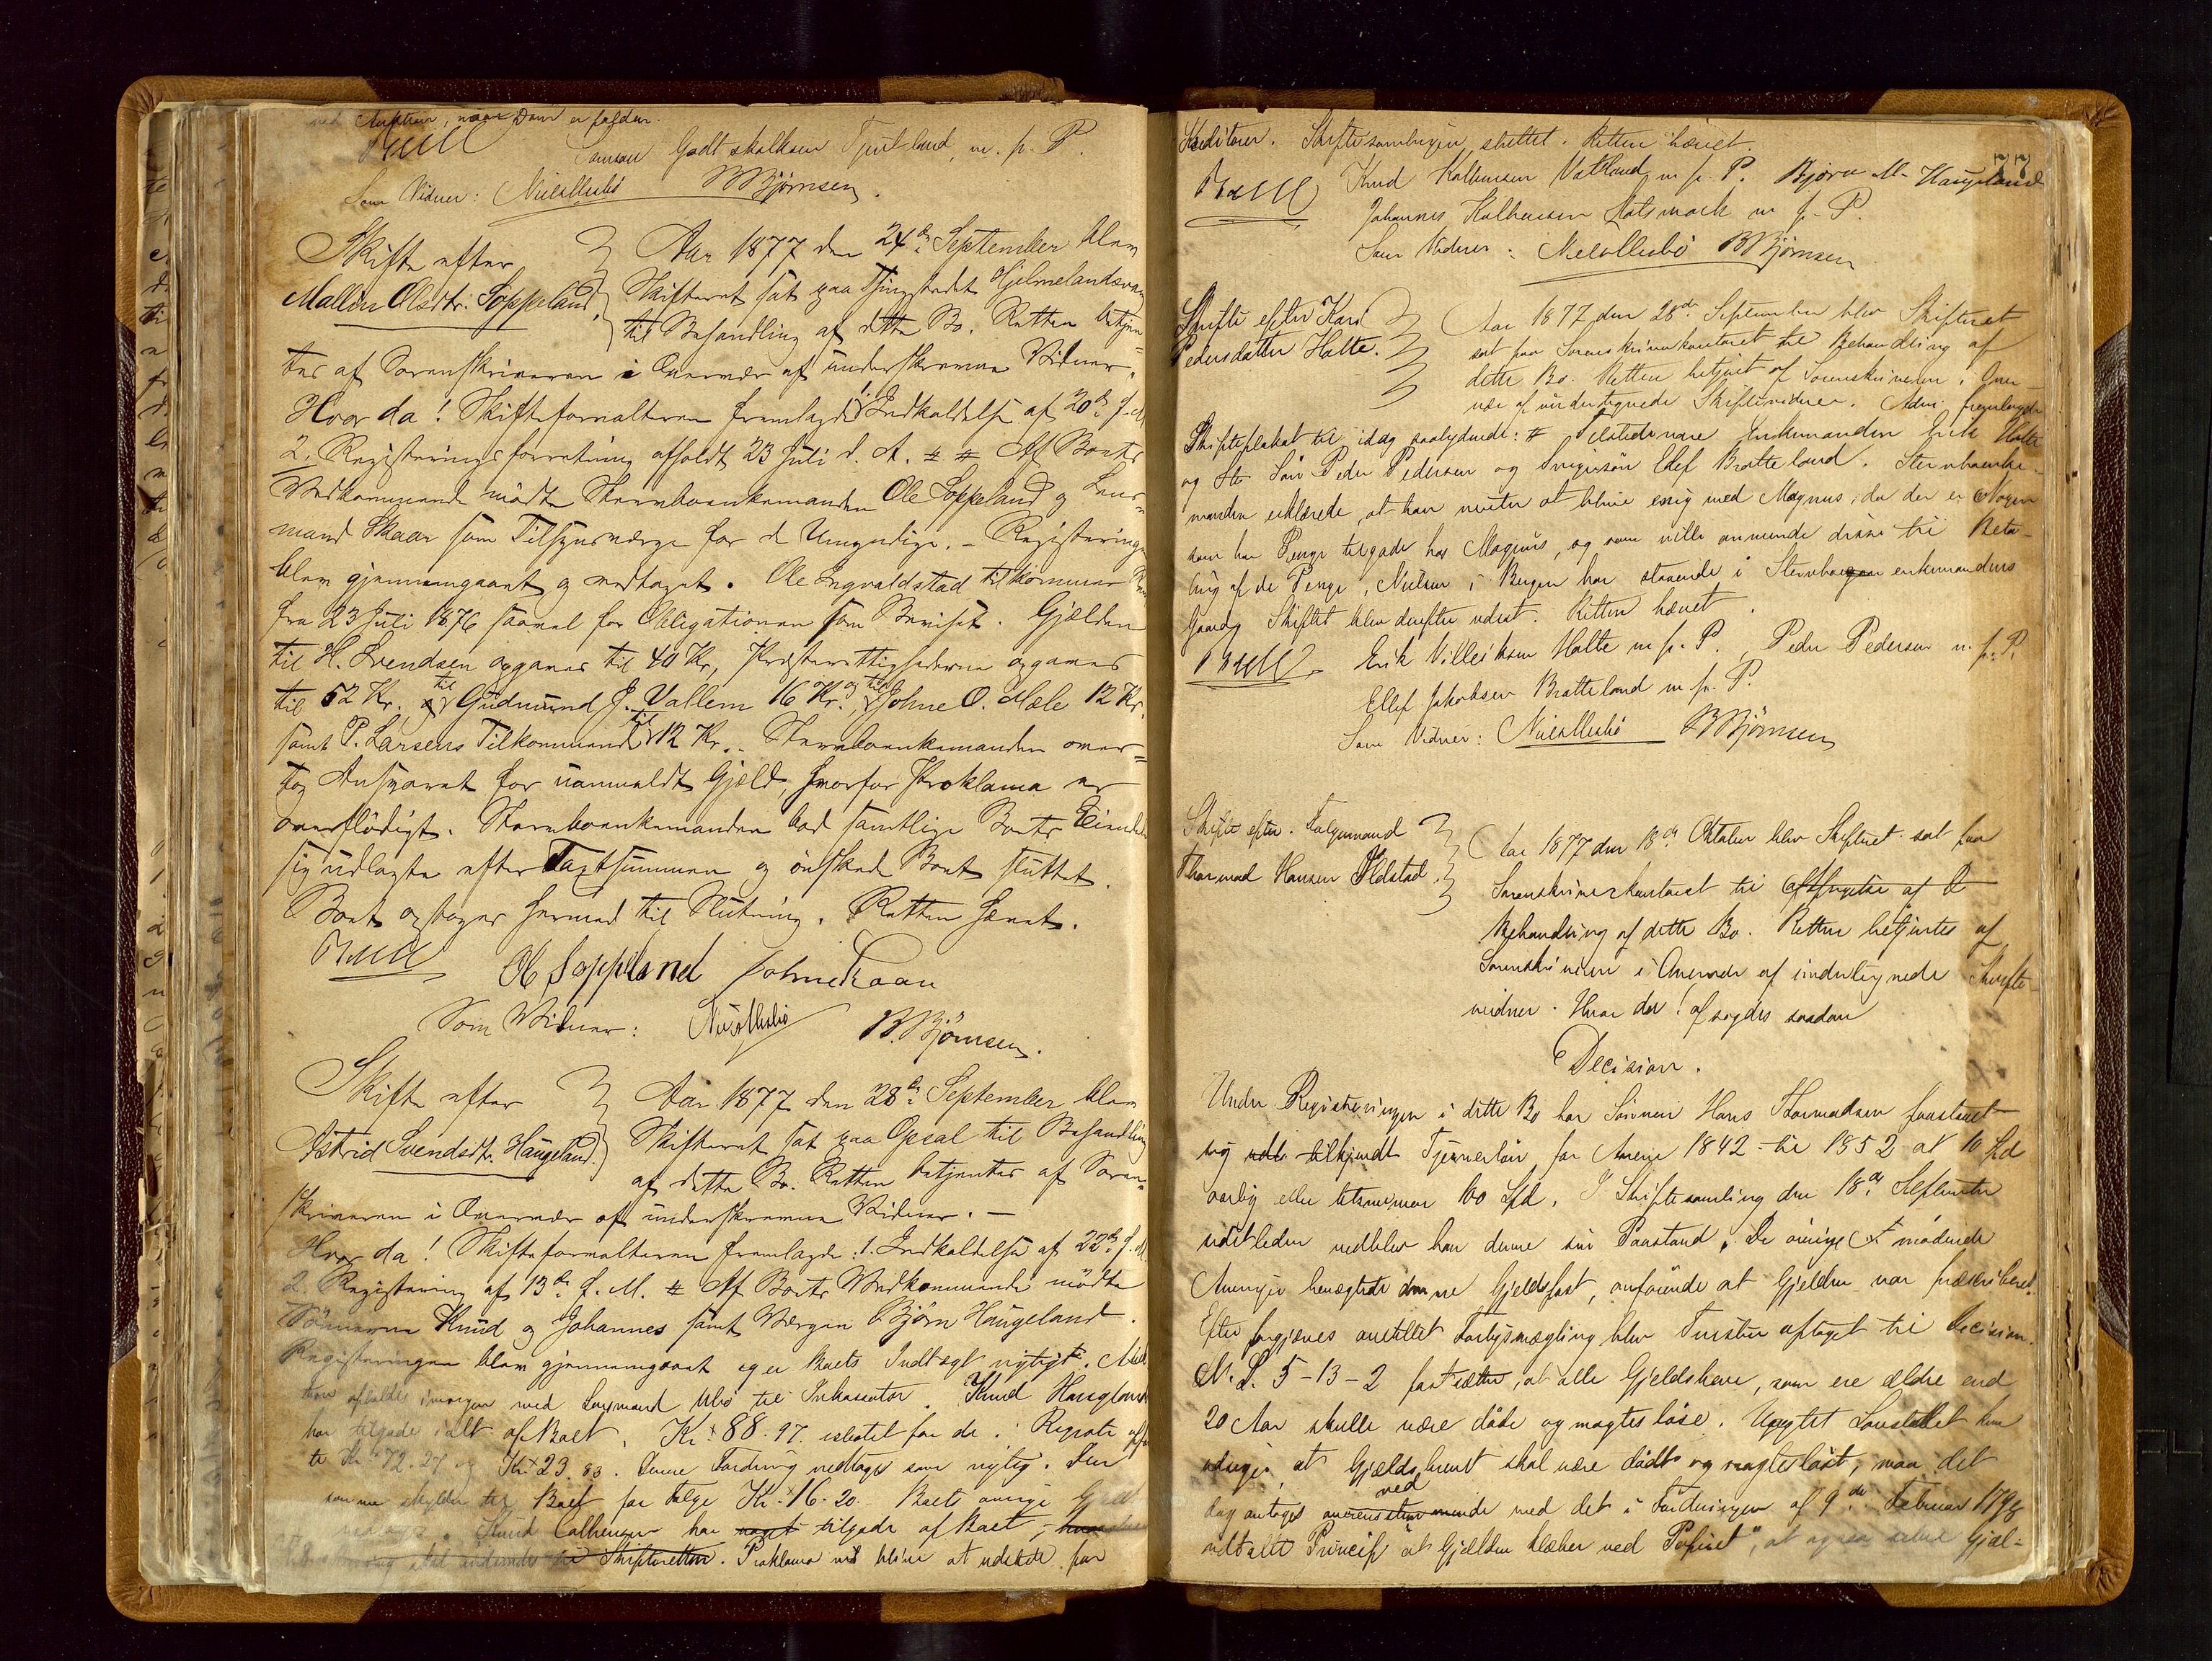 Auktion, naar Dom er falden.
Samson Godtskalksen Tjentland, m. p. P.
Som Vidner: BBjørnsen.
Skifte efter
Mallin Olsdtr. Soppeland.
Aar 1877 den 24de September blev
Skifteret sat paa Thingstedet Hjelmelandsvaag
til Behandling af dette Bo. Retten betjen-
tes af Sorenskriveren i Overvær af underskrevne Vidner.
Hvor da! Skifteforvalteren fremlagde 1. Indkaldelse af 20de f. M.
2. Registreringsforretning afholdt 23 Juli d. A. # # Af Boets
Vedkommende mødte Stervboenkemanden Ole Soppeland og Lens-
mand Skaar som Tilsynsværge for de Umyndige. - Registreringen
blev gjennemgaaet og vedtaget. Ole Ingvaldstad tilkommer
fra 23 Juli 1876 saavel for Obligationen som Beviset. Gjælden
til H. Svendsen opgaves til 40 Kr, Præsterettighederne opgaves
til 52 Kr. til Gudmund J. Vallem 16 Kr. og til Johne O. Mæle 12 Kr.
samt P. Larsens Tilkommende til 12 Kr. Stervboenkemanden over-
tog Ansvaret for uanmeldt Gjæld, hvorfor Proklama er
overflødigt. Stervboenkemanden bad samtlige Boets Eiendele
sig udlagte efter Taxtsummen og ønskede Boet sluttet.
Boet optages hermed til Slutning. Retten hævet.
Ole Soppeland John Skaar
Som Vidner: B. Bjørnsen.
Skifte efter
Astrid Svendsdtr. Haugeland.
Aar 1877 den 28de September blev
Skifteret sat paa Opsal til Behandling
af dette Bo. Retten betjentes af Soren-
skriveren i Overvær af underskrevne Vidner. -
Hvor da! Skifteforvalteren fremlagde: 1. Indkaldelse af 22de f. M.
2. Registrering af 13de f. M. # Af Boets Vedkommende mødte
Sønnerne Knud og Johannes samt Værgen Bjørn Haugeland.
Registreringen blev gjennemgaaet og er Boets Indtægt rigtigt. Auk
tion afholdes imorgen med Lensmand Ubø til Inkassator. Knud Haugeland
har tilgode ialt af Boet, Kr. 88.97.
te Kr. 72.27 og Kr. 23.83. Denne Fordring vedtages som rigtig. Den
samme skylder til Boet for Følge Kr. 16.20. Boets øvrige Gjæld
Knud Cathensen har noget tilgode af Boet,
Skifteretten. Proklama vil blive at udstede for
77
Kreditorer. Skiftesamlingen sluttet. Retten hævet.
Knud Kolbensen Vatland m. p. P. Bjørn M. Haugeland
Johannes Kolbensen m. p. P.
Som Vidner: BBjørnsen
Skifte efter Kari
Pedersdatter Halte.
Aar 1877 den 28de September blev Skifteret
sat paa Sorenskriverkontoret til Behandling af
dette Bo. Retten betjent af Sorenskriveren i Over-
vær af undertegnede Skiftevidner. Adm. fremlagde
Skifteplakat til idag saalydende: # Tilstede vare Enkemanden Erik Halte
og Søn Peder Pedersen og Svigersøn Ellef Bratteland. Stervboenke-
manden erklærede, at han venter at blive enig med Magnus, da der er Nogen
som har Penge tilgode hos Magnus, og som ville anvende disse til Beta-
ling af de Penge, Nielsen i Bergen har staaende i Stervboenkemandens
Gaard. Skiftet blev derefter udsat. Retten hævet.
Erik Villeiksen Halte m. p. P. Peder Pedersen m. p. P.
Ellef Jakobsen Bratteland m. p. P.
Som Vidner: BBjørnsen
Skifte efter Følgemand
Thormod Hansen Ilstad.
Aar 1877 den 18de Oktober blev Skifteret sat paa
Sorenskriverkontoret til Afsigelse af D
Behandling af dette Bo. Retten betjentes af
Sorenskriveren i Overvær af undertegnede Skifte-
vidner. Hvor da! afsagdes saadan
Decision.
Under Registreringen i dette Bo har Sønnen Hans Thormodsen paastaaet
sig udl tilkjendt Tjennerløn for Aarene 1842 til 1852 at 10 Spd
aarlig eller tilsammen 100 Spd. I Skiftesamling den 18de September
sidstleden vedblev han denne sin Paastand. De øvrige mødende
Arvinger benegtede denne Gjeldspost, anførende at Gjælden var præskriberet.
Efter forgjæves anstillet Forligsmægling blev Tvisten optaget til Decision.
N. L. 5-13-2 fastsætter, at alle Gjeldsbreve, som ere ældre end
20 Aar skulle være døde og magtesløse. Uagtet Lovstedet kun
udsiger, at Gjældsbrevet skal være dødt og magtesløst, maa det
dog antages ved overensstemmende med det i Forordningen af 9de Februar 1798
udtalte Princip "at Gjælden klæber ved Papiret", at ogsaa selve Gjæl-